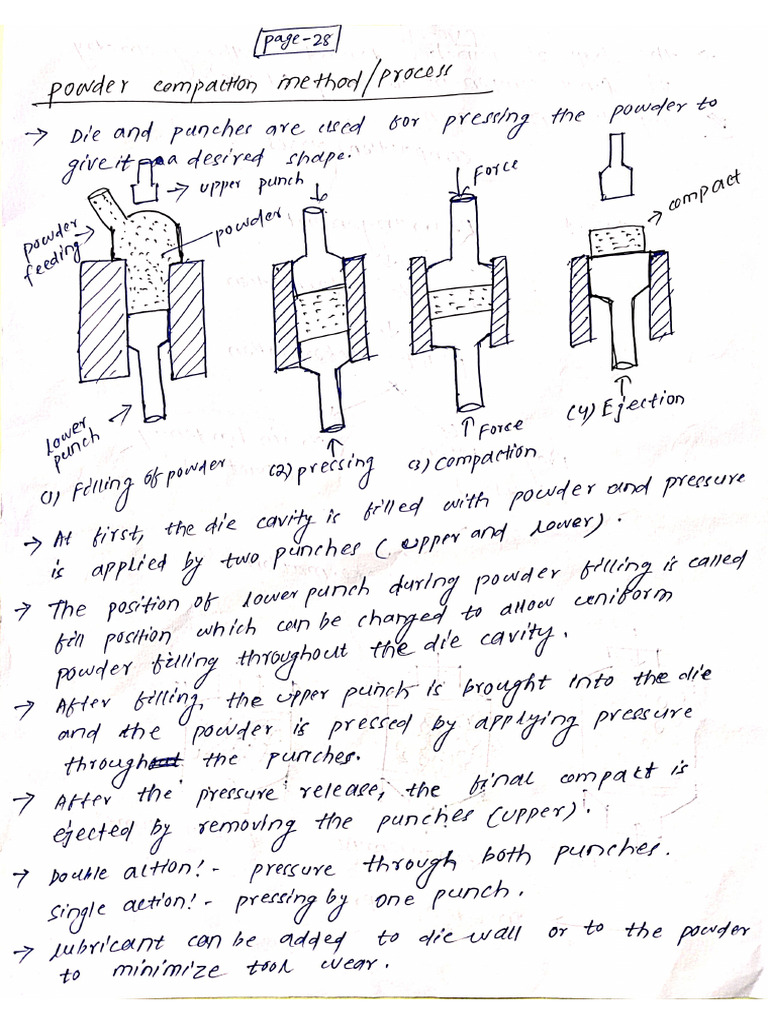 page-28
powder compaction method/process
→ Die and punches are used for pressing the powder to
give it a desired shape.
→ upper punch
Force
compact
powder
feeding
powder
lower
punch
Force
(1) Filling of powder
(2) pressing
(3) compaction
(4) Ejection
→ At first, the die cavity is filled with powder and pressure
is applied by two punches (upper and lower).
→ The position of lower punch during powder filling is called
fill position which can be changed to allow uniform
powder filling throughout the die cavity.
→ After filling, the upper punch is brought into the die
and the powder is pressed by applying pressure
through the punches.
→ After the pressure release, the final compact is
ejected by removing the punches (upper).
→ Double action:- pressure through both punches.
Single action:- pressing by one punch.
→ lubricant can be added to die wall or to the powder
to minimize tool wear.